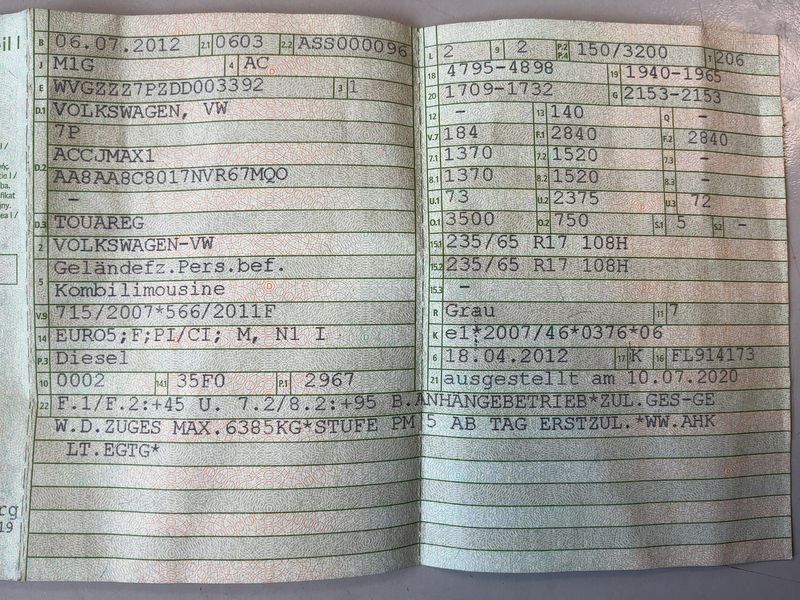 B 06.07.2012 2.1 0603 2.2 ASS000096
J M1G 4 AC
E WVGZZZ7PZDD003392 3 1
D.1 VOLKSWAGEN, VW
7P
D.2 ACCJMAX1
AA8AA8C8017NVR67MQO
-
D.3 TOUAREG
2 VOLKSWAGEN-VW
5 Geländefz.Pers.bef.
Kombilimousine
V.9 715/2007*566/2011F
14 EURO5;F;PI/CI; M, N1 I
P.3 Diesel
10 0002 14.1 35F0 P.1 2967
22 F.1/F.2:+45 U. 7.2/8.2:+95 B.ANHÄNGEBETRIEB*ZUL.GES-GE
W.D.ZUGES MAX.6385KG*STUFE PM 5 AB TAG ERSTZUL.*WW.AHK
LT.EGTG*
L 2 9 2 P.2 P.4 150/3200 T 206
18 4795-4898 19 1940-1965
20 1709-1732 G 2153-2153
12 - 13 140 Q -
V.7 184 F.1 2840 F.2 2840
7.1 1370 7.2 1520 7.3 -
8.1 1370 8.2 1520 8.3 -
U.1 73 U.2 2375 U.3 72
O.1 3500 O.2 750 S.1 5 S.2 -
15.1 235/65 R17 108H
15.2 235/65 R17 108H
15.3 -
R Grau 11 7
K e1*2007/46*0376*06
6 18.04.2012 17 K 16 FL914173
21 ausgestellt am 10.07.2020